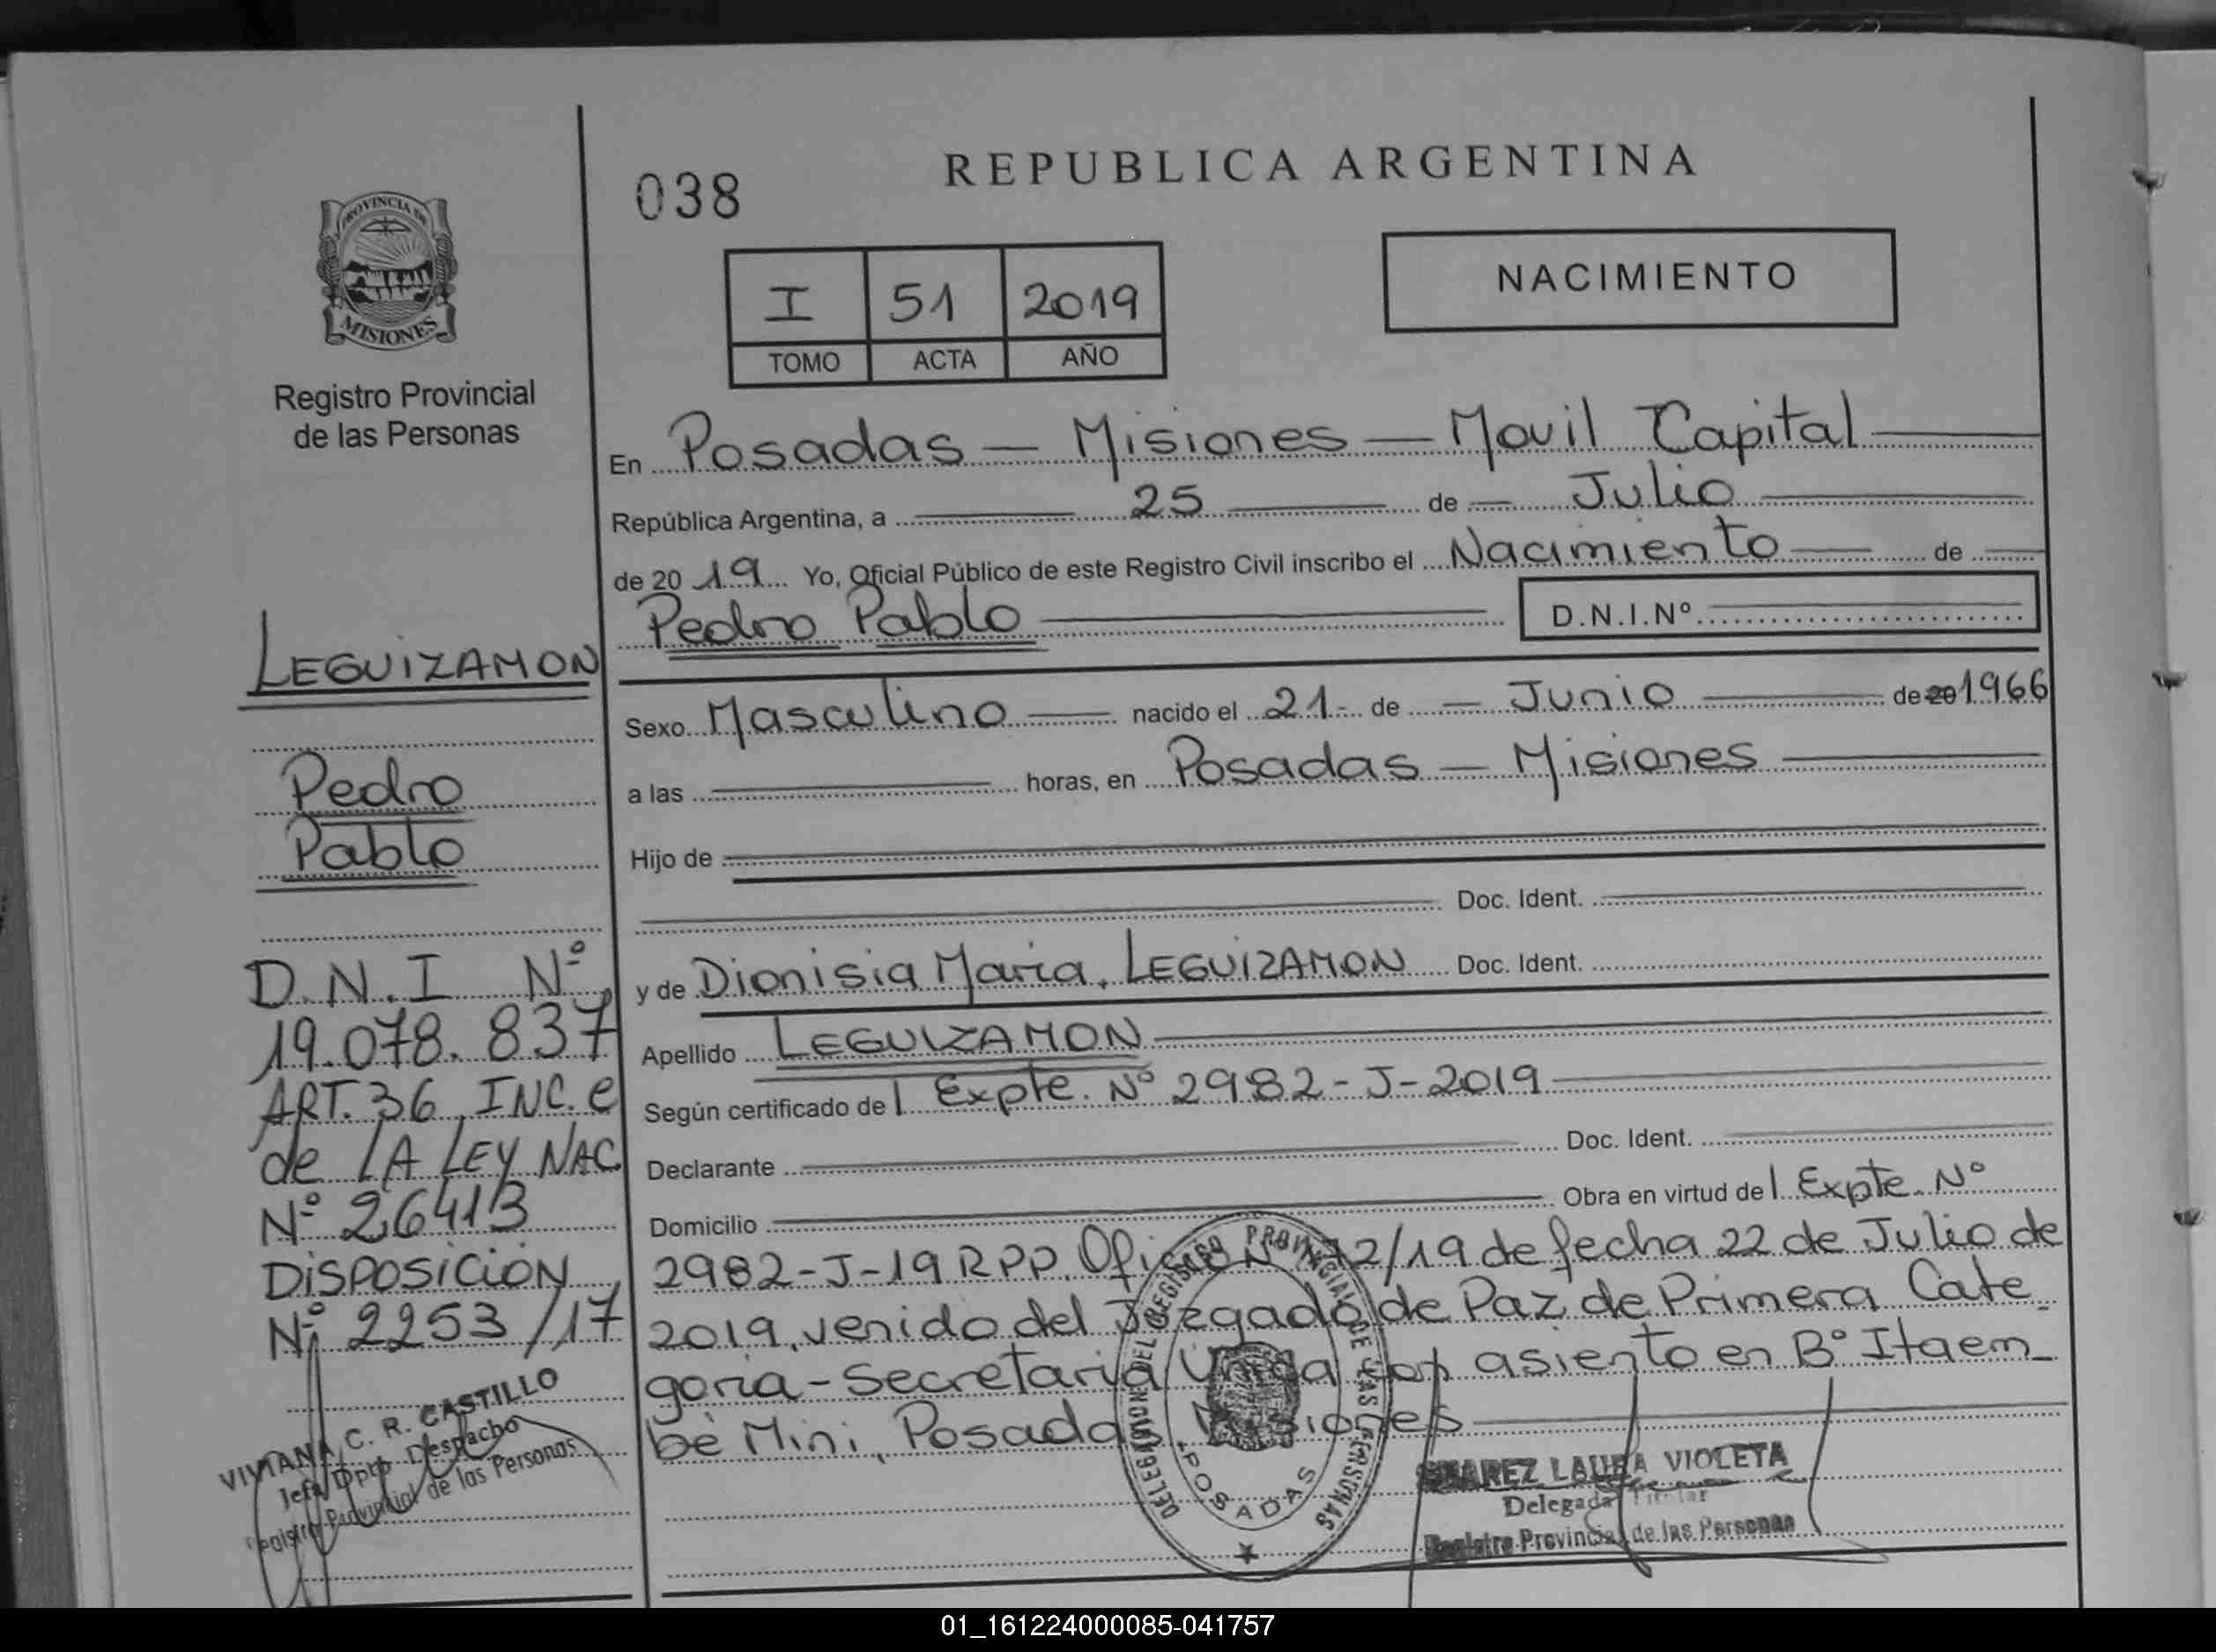 REPUBLICA ARGENTINA
038
PROVINCIA DE
MISIONES
Registro Provincial
de las Personas
I 51 2019
TOMO ACTA AÑO
NACIMIENTO
En Posadas — Misiones — Movil Capital
República Argentina, a 25 de Julio
de 2019 Yo, Oficial Público de este Registro Civil inscribo el Nacimiento de
Pedro Pablo D.N.I.Nº
Sexo Masculino nacido el 21 de Junio de 20 1966
a las horas, en Posadas — Misiones
Hijo de
Doc. Ident.
y de Dionisia Maria, LEGUIZAMON Doc. Ident.
Apellido LEGUIZAMON
Según certificado del Expte. Nº 2982-J-2019
Declarante Doc. Ident.
Domicilio Obra en virtud del Expte. Nº
2982-J-19 RPP. Oficio Nº 72/19 de fecha 22 de Julio de
2019, venido del Juzgado de Paz de Primera Cate
goria - Secretaria Unica con asiento en Bº Itaem
bé Mini, Posadas, Misiones
LEGUIZAMON
Pedro
Pablo
D.N.I Nº
19.078.837
ART. 36, INC. e
de LA LEY NAC
Nº 26413
DISPOSICIÓN
Nº 2253/17
VIVIANA C. R. CASTILLO
Jefa Dpto Despacho
Registro Provincial de las Personas
DELEGACION DEL REGISTRO PROVINCIAL DE LAS PERSONAS
POSADAS
SUAREZ LAURA VIOLETA
Delegada Titular
Registro Provincial de las Personas
01_161224000085-041757